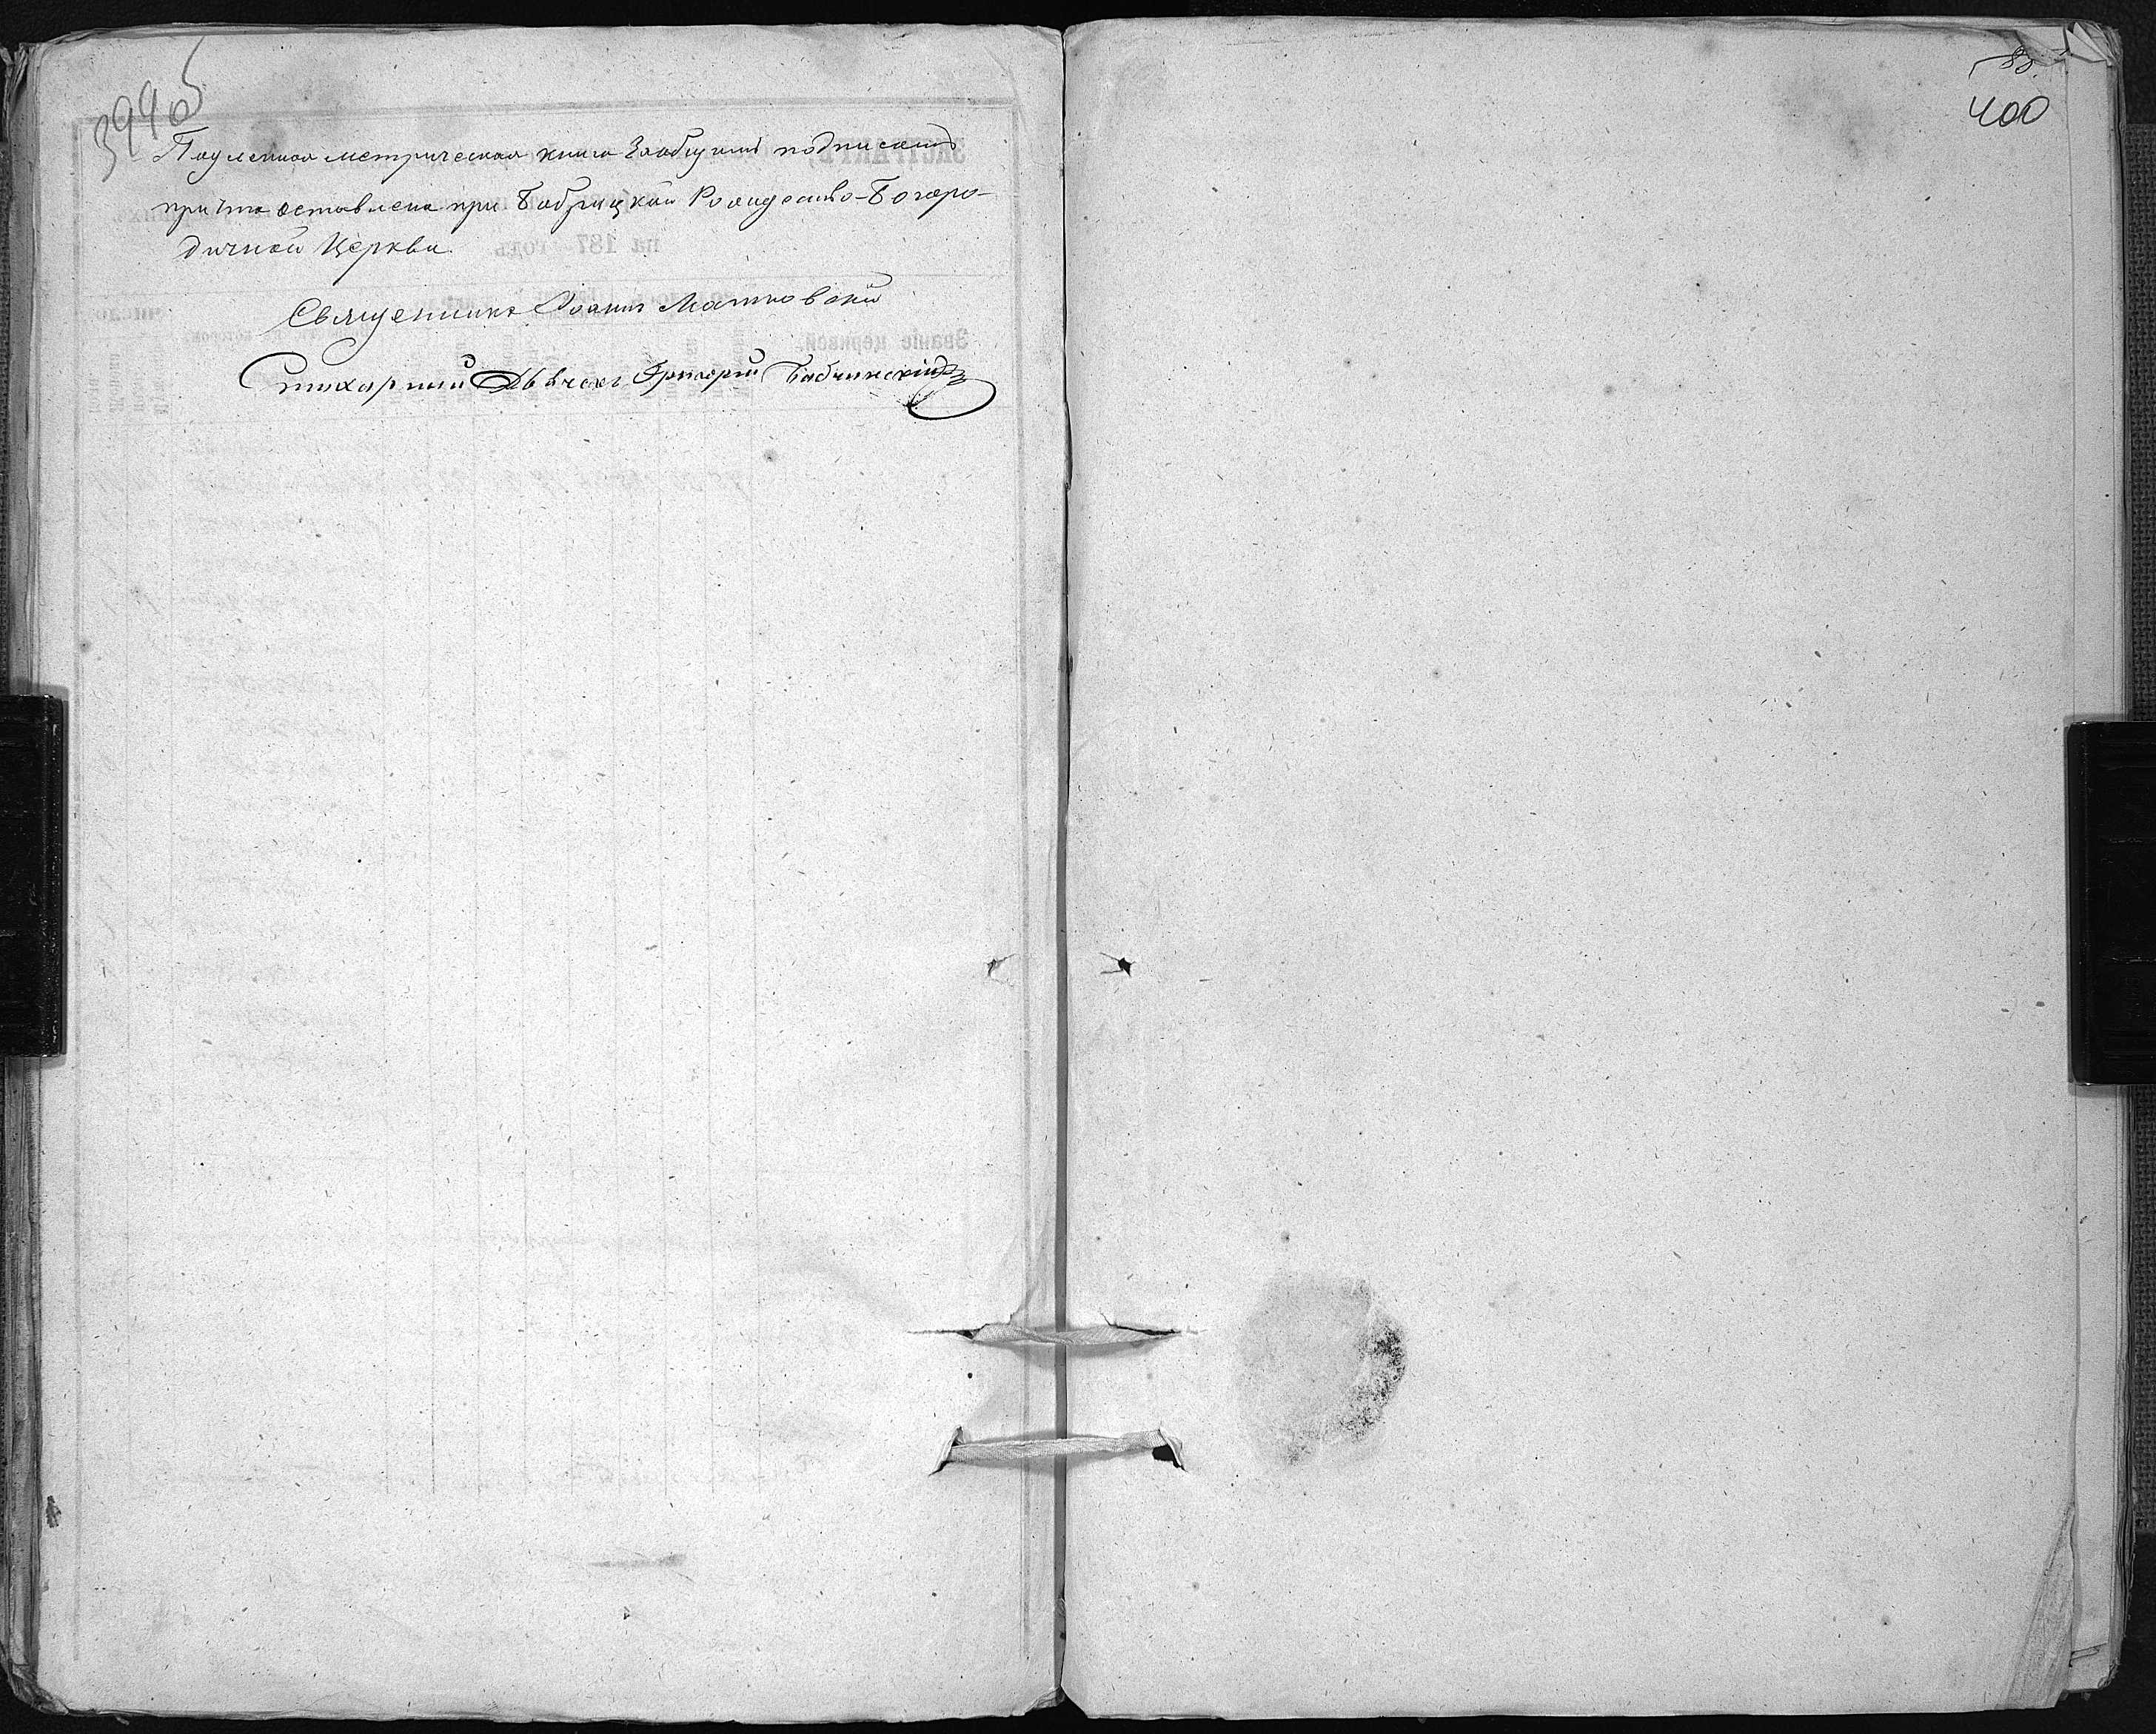 399 об
Подленная метрическая книга за общимъ подписомъ
причта оставлена при Бобрицкой Рождество-Богоро-
дичной Церкви.
Священникъ Іоаннъ Матковскій
Стихарный Дьячекъ Григорій Бабчинскій
400